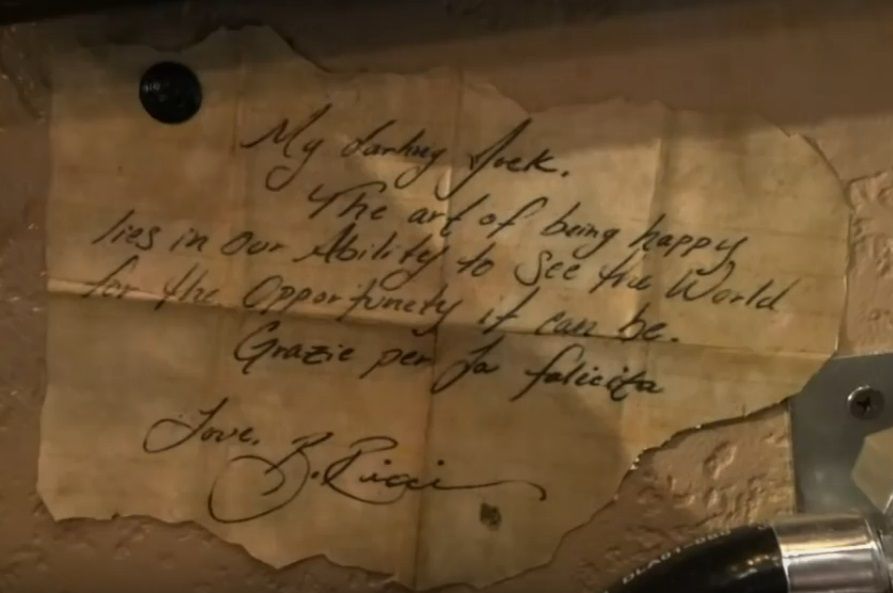 My darling Jock.
The art of being happy
lies in our Ability to See the World
for the Opportunety it can be.
Grazie per la falicita
Love,
B. Ricci